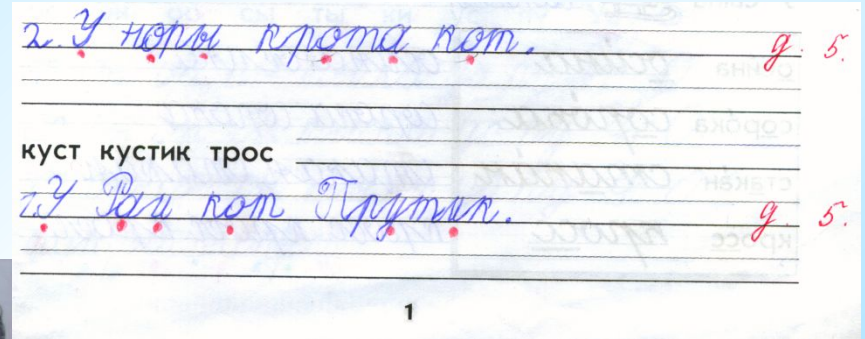 2. У норы крота кот. д. 5.
куст кустик трос
1. У Раи кот Прутик. д. 5.
1